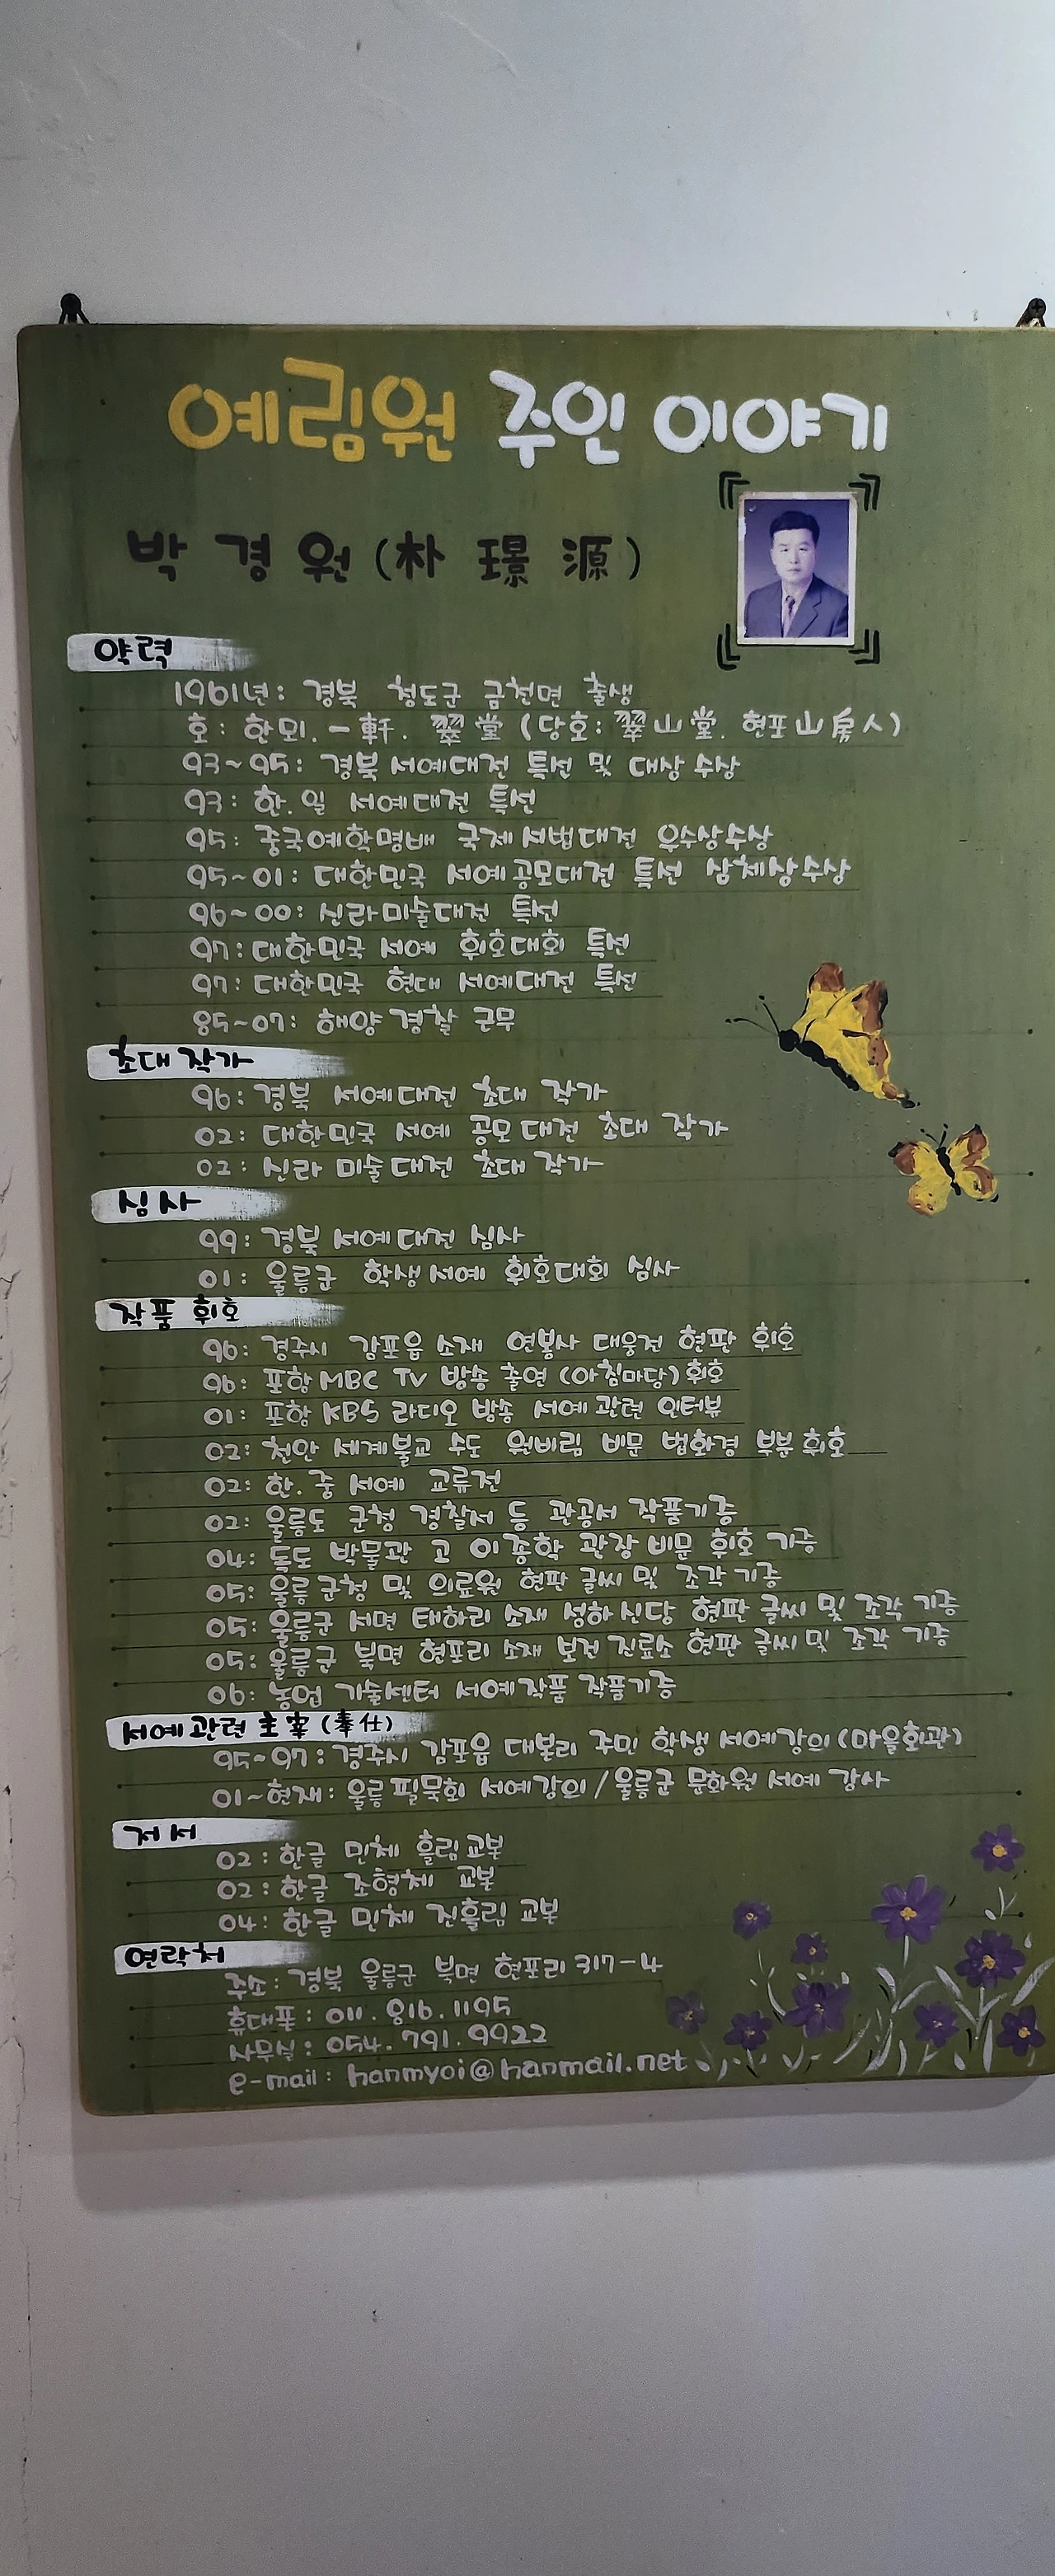 예림원 주인 이야기
박경원(朴 璟 源)
약력
1961년: 경북 청도군 금천면 출생
호: 한뫼. 一軒. 翠堂 (당호: 翠山堂. 현포山房人)
93~95: 경북 서예대전 특선 및 대상 수상
93: 한.일 서예대전 특선
95: 중국예학명배 국제서법대전 우수상수상
95~01: 대한민국 서예공모대전 특선 삼체상수상
96~00: 신라미술대전 특선
97: 대한민국 서예 휘호대회 특선
97: 대한민국 현대 서예대전 특선
85~07: 해양경찰 근무
초대작가
96: 경북 서예대전 초대 작가
02: 대한민국 서예 공모대전 초대 작가
02: 신라 미술대전 초대 작가
심사
99: 경북 서예대전 심사
01: 울릉군 학생서예 휘호대회 심사
작품 휘호
96: 경주시 감포읍 소재 연봉사 대웅전 현판 휘호
96: 포항MBC TV 방송 출연 (아침마당)휘호
01: 포항 KBS 라디오 방송 서예관련 인터뷰
02: 천안 세계불교 수도 원비림 비문 법화경 부분 휘호
02: 한.중 서예 교류전
02: 울릉도 군청 경찰서 등 관공서 작품기증
04: 독도 박물관 고 이종학 관장 비문 휘호 기증
05: 울릉군청 및 의료원 현판 글씨 및 조각 기증
05: 울릉군 서면 태하리 소재 성하신당 현판 글씨 및 조각 기증
05: 울릉군 북면 현포리 소재 보건 진료소 현판 글씨 및 조각 기증
06: 농업 기술센터 서예작품 작품기증
서예관련 主宰 (奉仕)
95~97: 경주시 감포읍 대본리 주민 학생 서예강의(마을회관)
01~현재: 울릉필묵회 서예강의/울릉군 문화원 서예 강사
저서
02: 한글 민체 흘림교본
02: 한글 조형체 교본
04: 한글 민체 진흘림 교본
연락처
주소: 경북 울릉군 북면 현포리 317-4
휴대폰: 011. 816. 1195
사무실: 054. 791. 9922
e-mail: hanmyoi@hanmail.net